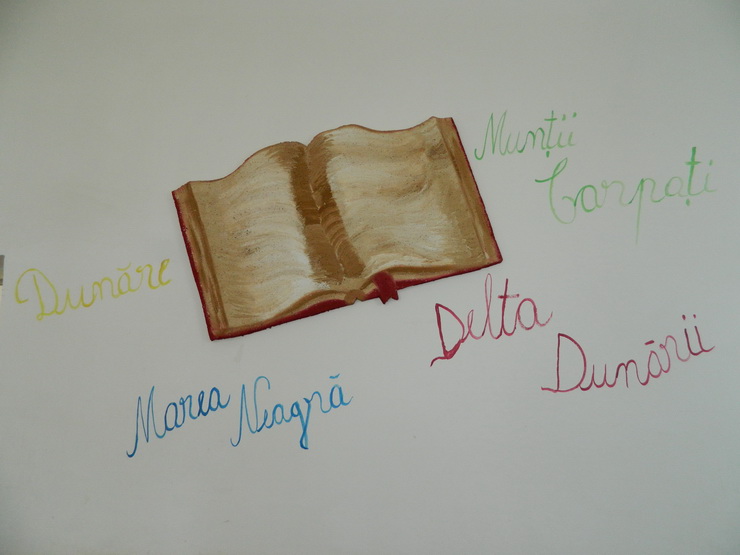 Munții
Carpați
Dunăre
Delta
Dunării
Marea Neagră